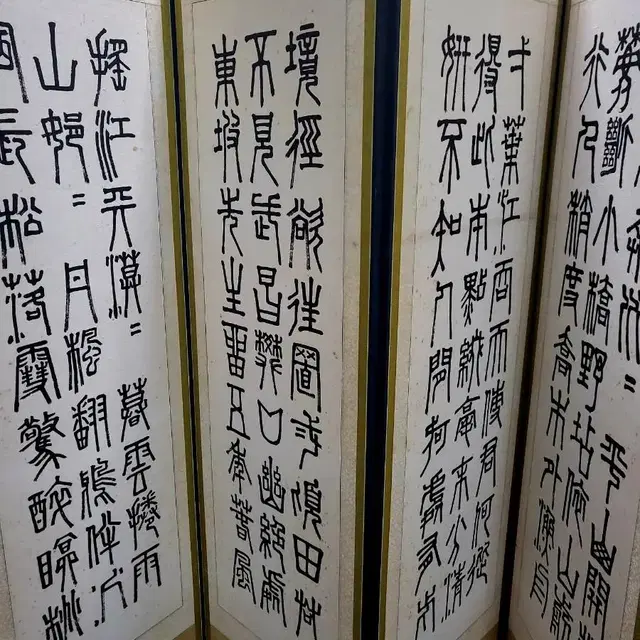 川〻平山開
麓斷小橋野店依山前
行人稍度喬木外漁舟
一葉江吞天使君何從
得此本點綴毫末分清
妍不知人間何處有此
境徑欲往置二頃田君
不見武昌樊口幽絕處
東坡先生留五年春風
搖江天漠〻暮雲捲雨
山娟〻丹楓翻鴉伴水
宿長松落雪驚醉眠桃